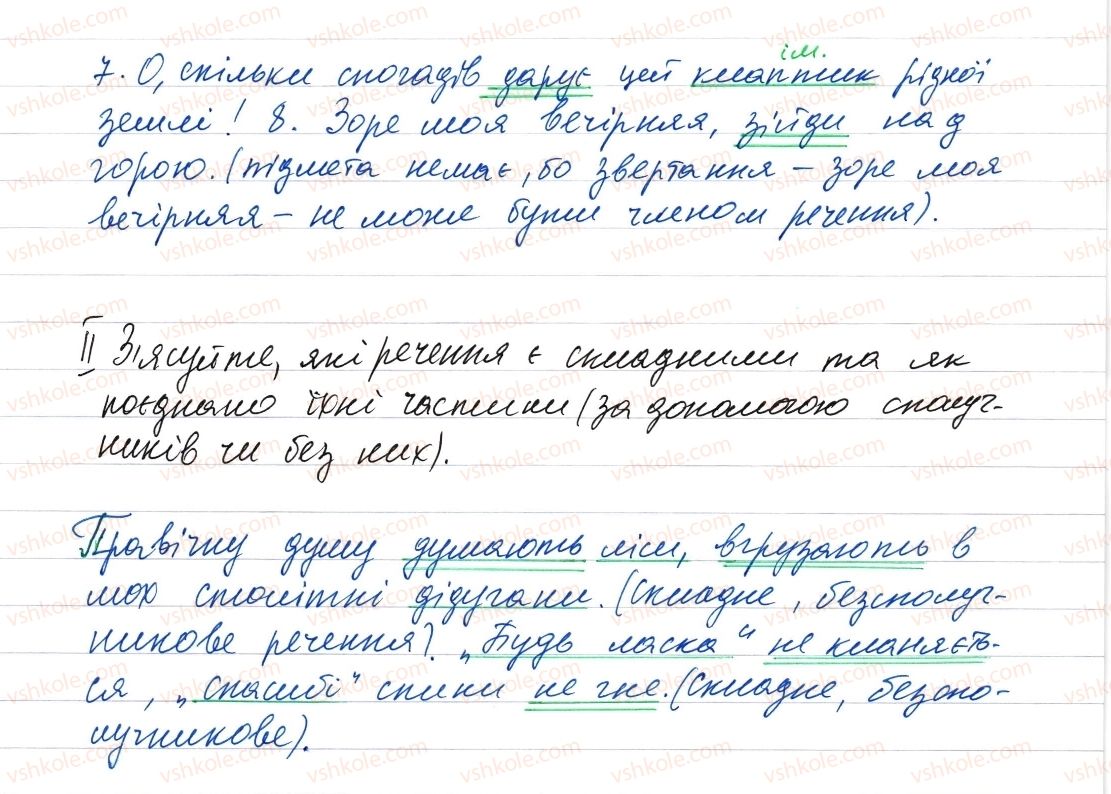 ім.
7. О, скільки спогадів дарує цей клаптик рідної
землі! 8. Зоре моя вечірняя, зійди над
горою. (підмета немає, бо звертання – зоре моя
вечірняя – не може бути членом речення).
ІІ З'ясуйте, які речення є складними та як
поєднано їхні частини (за допомогою сполуч-
ників чи без них).
Правічну думу думають ліси, вгрузають в
мох столітні дідугани. (Складне, безсполуч-
никове речення). „Будь ласка" не кланяєть-
ся, „спасибі" спини не гне. (Складне, безспо-
лучникове).
vshkole.com